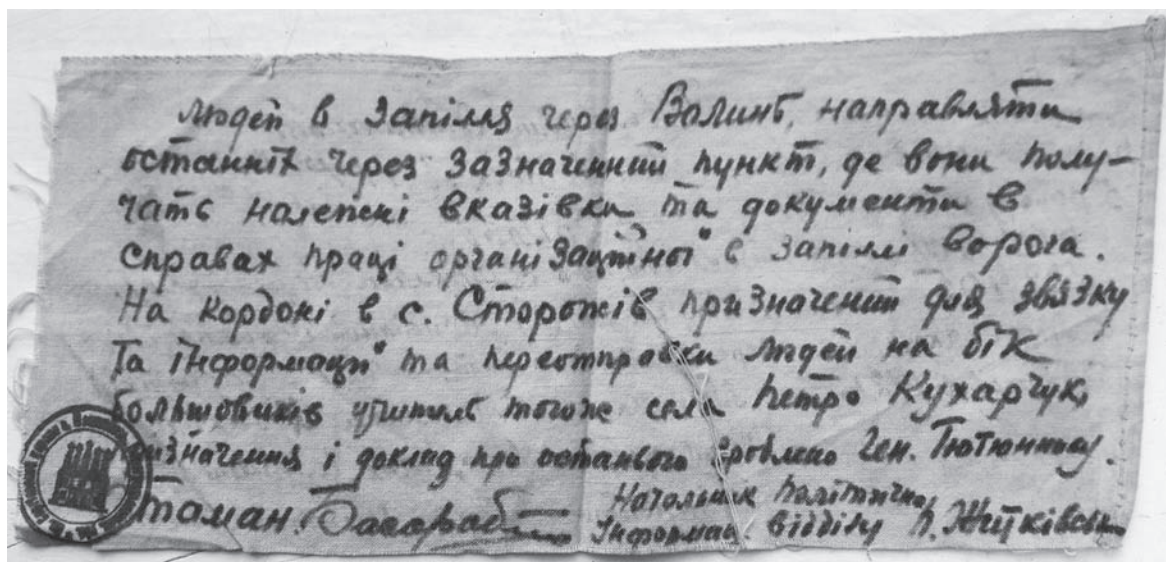 Людей в Запілля через Волинь, направляти
останніх через зазначенний пункт, де вони полу-
чать належні вказівки та документи в
справах праці організаційної в запіллі ворога.
На кордоні в с. Сторожів призначений для звязку
Та інформації та переотправки людей на бік
большовиків учитель тогоже села Петро Кухарчук,
призначення і доклад про останього зроблено Ген. Тютюннику.
Отаман. Басараб
Начальник Політично
Інформац. відділу П.